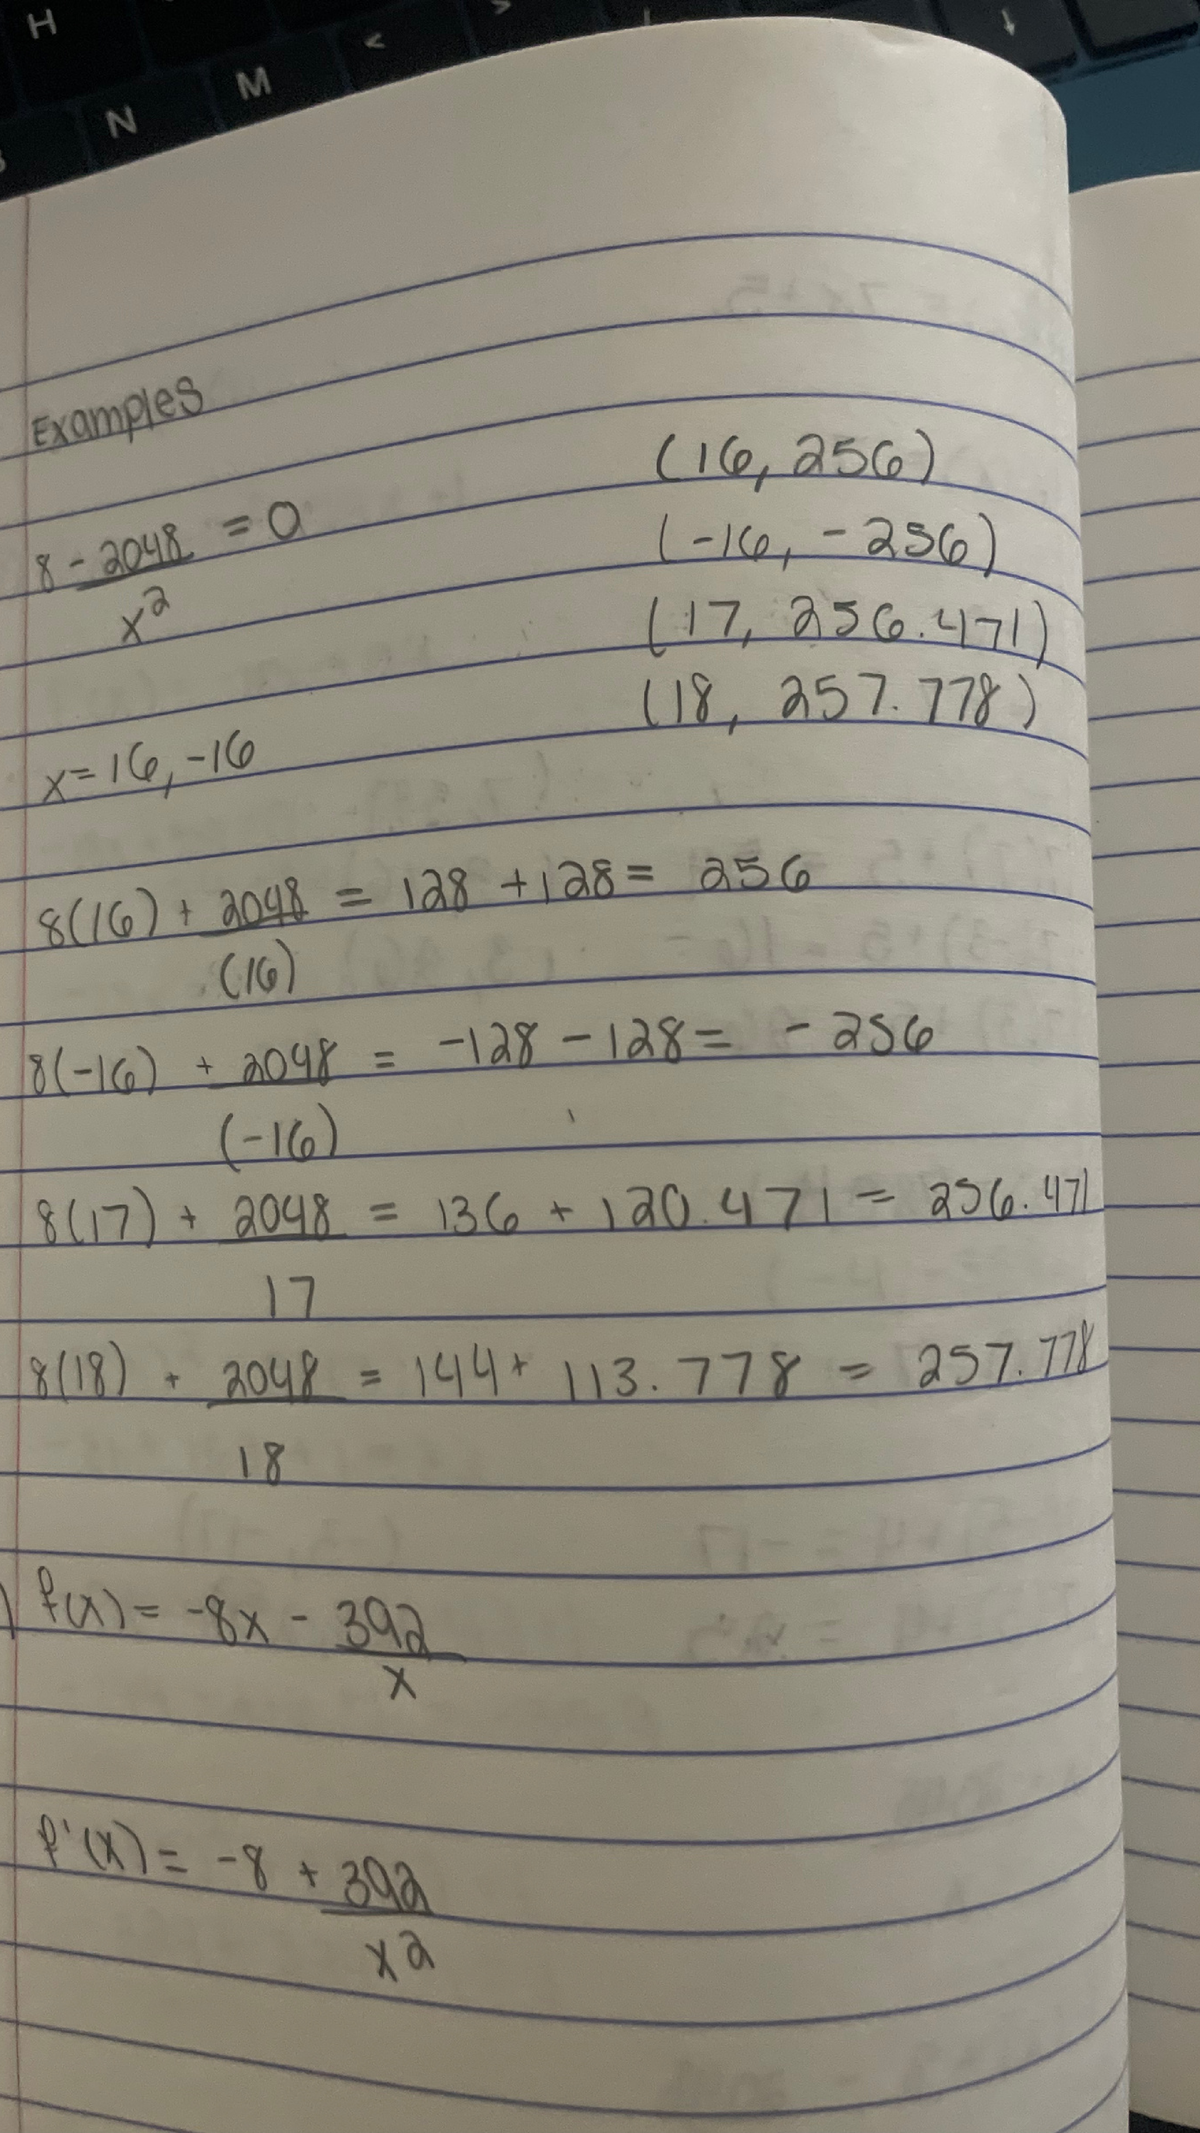 H
N
M
<
Examples
(16, 256)
8 - 2048 = 0
x²
(-16, -256)
(17, 256.471)
(18, 257.778)
x = 16, -16
8(16) + 2048 = 128 + 128 = 256
(16)
8(-16) + 2048 = -128 - 128 = - 256
(-16)
8(17) + 2048 = 136 + 120.471 = 256.471
17
8(18) + 2048 = 144 + 113.778 = 257.778
18
) f(x) = -8x - 392
x
f'(x) = -8 + 392
x2